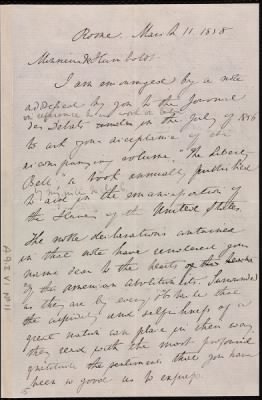 Rome. March 11 1858
Monsieur de Humboldt.
I am encouraged by a note
addressed by you to the Journal
des Débats in the July of 1856
to ask your acceptance of the
accompanying volume, "The Liberty
Bell", a book annually published
to aid in the emancipation of
the Slaves of the United States.
The noble declarations contained
in that note have rendered your
name dear to the hearts of
the American abolitionists. Surrounded
as they are by every obstacle that
the cupidity and selfishness of a
great nation can place in their way,
they read with the most profound
gratitude the sentiments that you have
been so good as to express
A.9.2 V. N 11